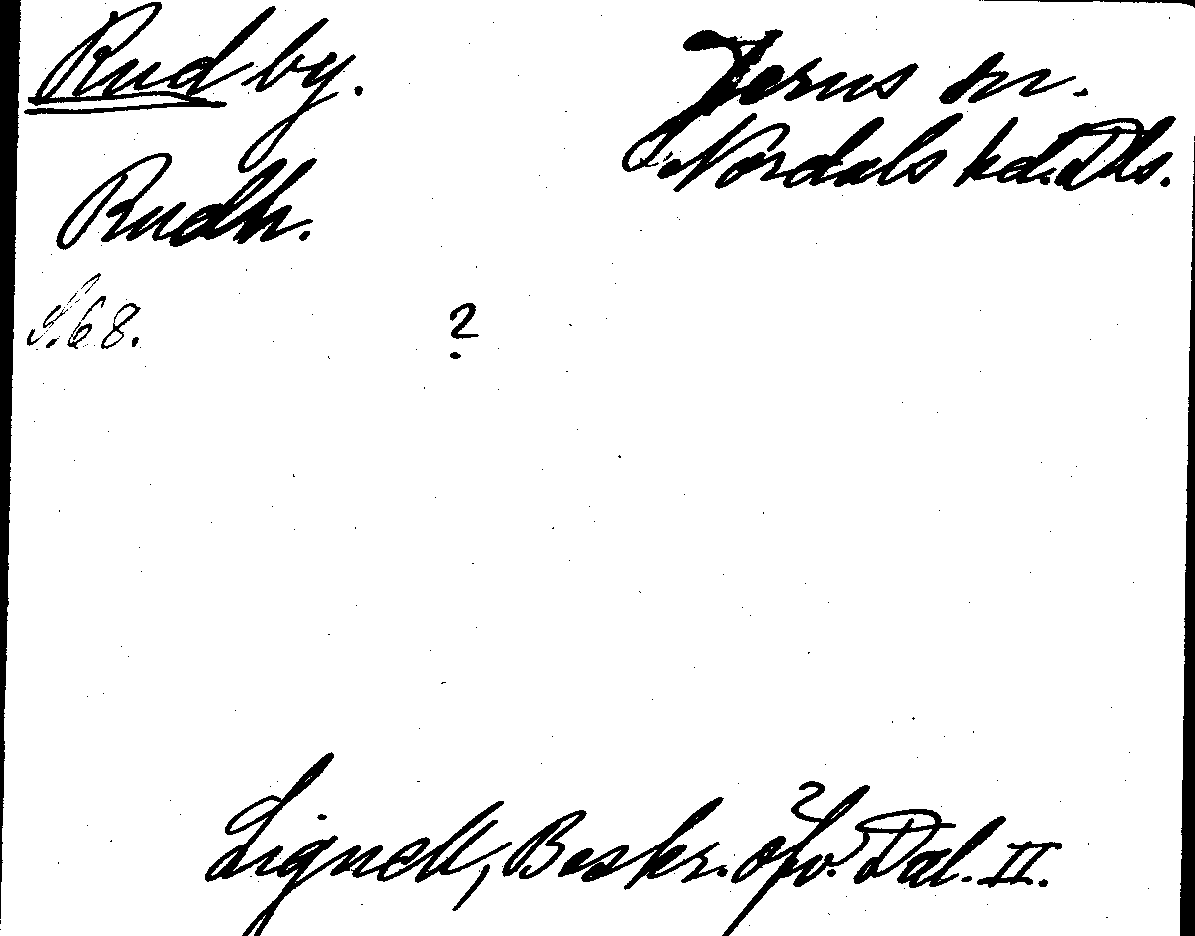 Rud by.
Järns sn.
Nordals hd. Dls.
Rudh.
S. 68.
?
Lignell, Beskr. öfv. Dal. II.